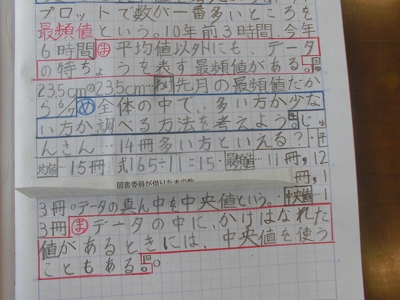 プロットで数が一番多いところを
最頻値という。10年前3時間、今年
6時間 ま 平均値以外にも、データ
の特ちょうを表す最頻値がある。
23.5cm 23.5cm… 先月の最頻値だか
ら め 全体の中で、多い方か少な
い方か調べる方法を考えよう。
んさん…14冊多い方といえる?
均値…15冊 式165÷11=15 最頻値…11冊, 12
図書委員が借りた本の数
3冊 データの真ん中を中央値という。中央値…1
3冊 ま データの中に、かけはなれた
値があるときには、中央値を使う
こともある。